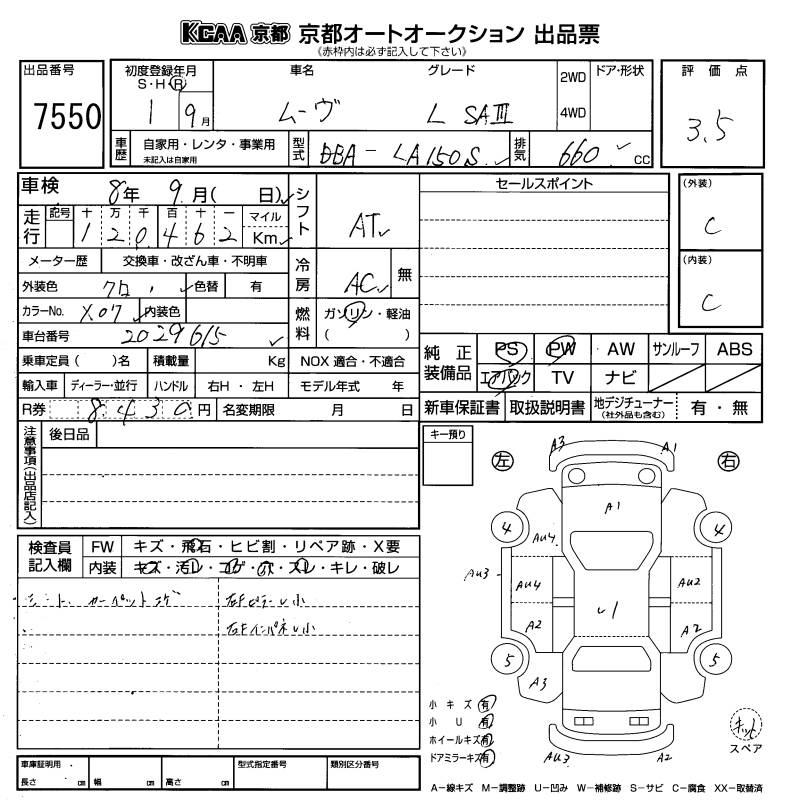 KCAA 京都 京都オートオークション 出品票
《赤枠内は必ず記入して下さい》
出品番号 7550
初度登録年月 S・H・R 1 9月
車名 ムーヴ
グレード L SAⅢ
2WD 4WD
ドア・形状
評価点 3.5
車歴 自家用・レンタ・事業用 未記入は自家用
型式 DBA-LA150S
排気 660 cc
車検 8年 9月( 日)
シフト AT
セールスポイント
(外装) C
走行 記号 十 万 千 百 十 一 マイル Km
1 2 0 4 6 2
(内装) C
メーター歴 交換車・改ざん車・不明車
冷房 AC 無
外装色 クロ 色替 有
カラーNo. X07 内装色
燃料 ガソリン・軽油 ( )
車台番号 2029615
乗車定員( )名 積載量 Kg NOX 適合・不適合
純正装備品 PS PW AW サンルーフ ABS
エアバック TV ナビ
輸入車 ディーラー・並行 ハンドル 右H・左H モデル年式 年
R券 8430円 名変期限 月 日
新車保証書 取扱説明書 地デジチューナー (社外品も含む) 有・無
注意事項(出品店記入) 後日品
キー預り
左 右
A3 A1
A1
4 4
AU4
AU3 AU4 AU2
A2 ㇾ1 A2
5 5
A3
AU3 A2
検査員記入欄 FW キズ・飛石・ヒビ割・リペア跡・X要
内装 キズ・汚レ・コゲ・穴・スレ・キレ・破レ
シート、カーペットコゲ
右Fピラーㇾ小
右Fインパネㇾ小
小キズ 有
小U 有
ホイールキズ 有
ドアミラーキズ 有
キット スペア
車庫証明用 長さ cm 幅 cm 高さ cm
型式指定番号
類別区分番号
A-線キズ M-調整跡 U-凹み W-補修跡 S-サビ C-腐食 XX-取替済